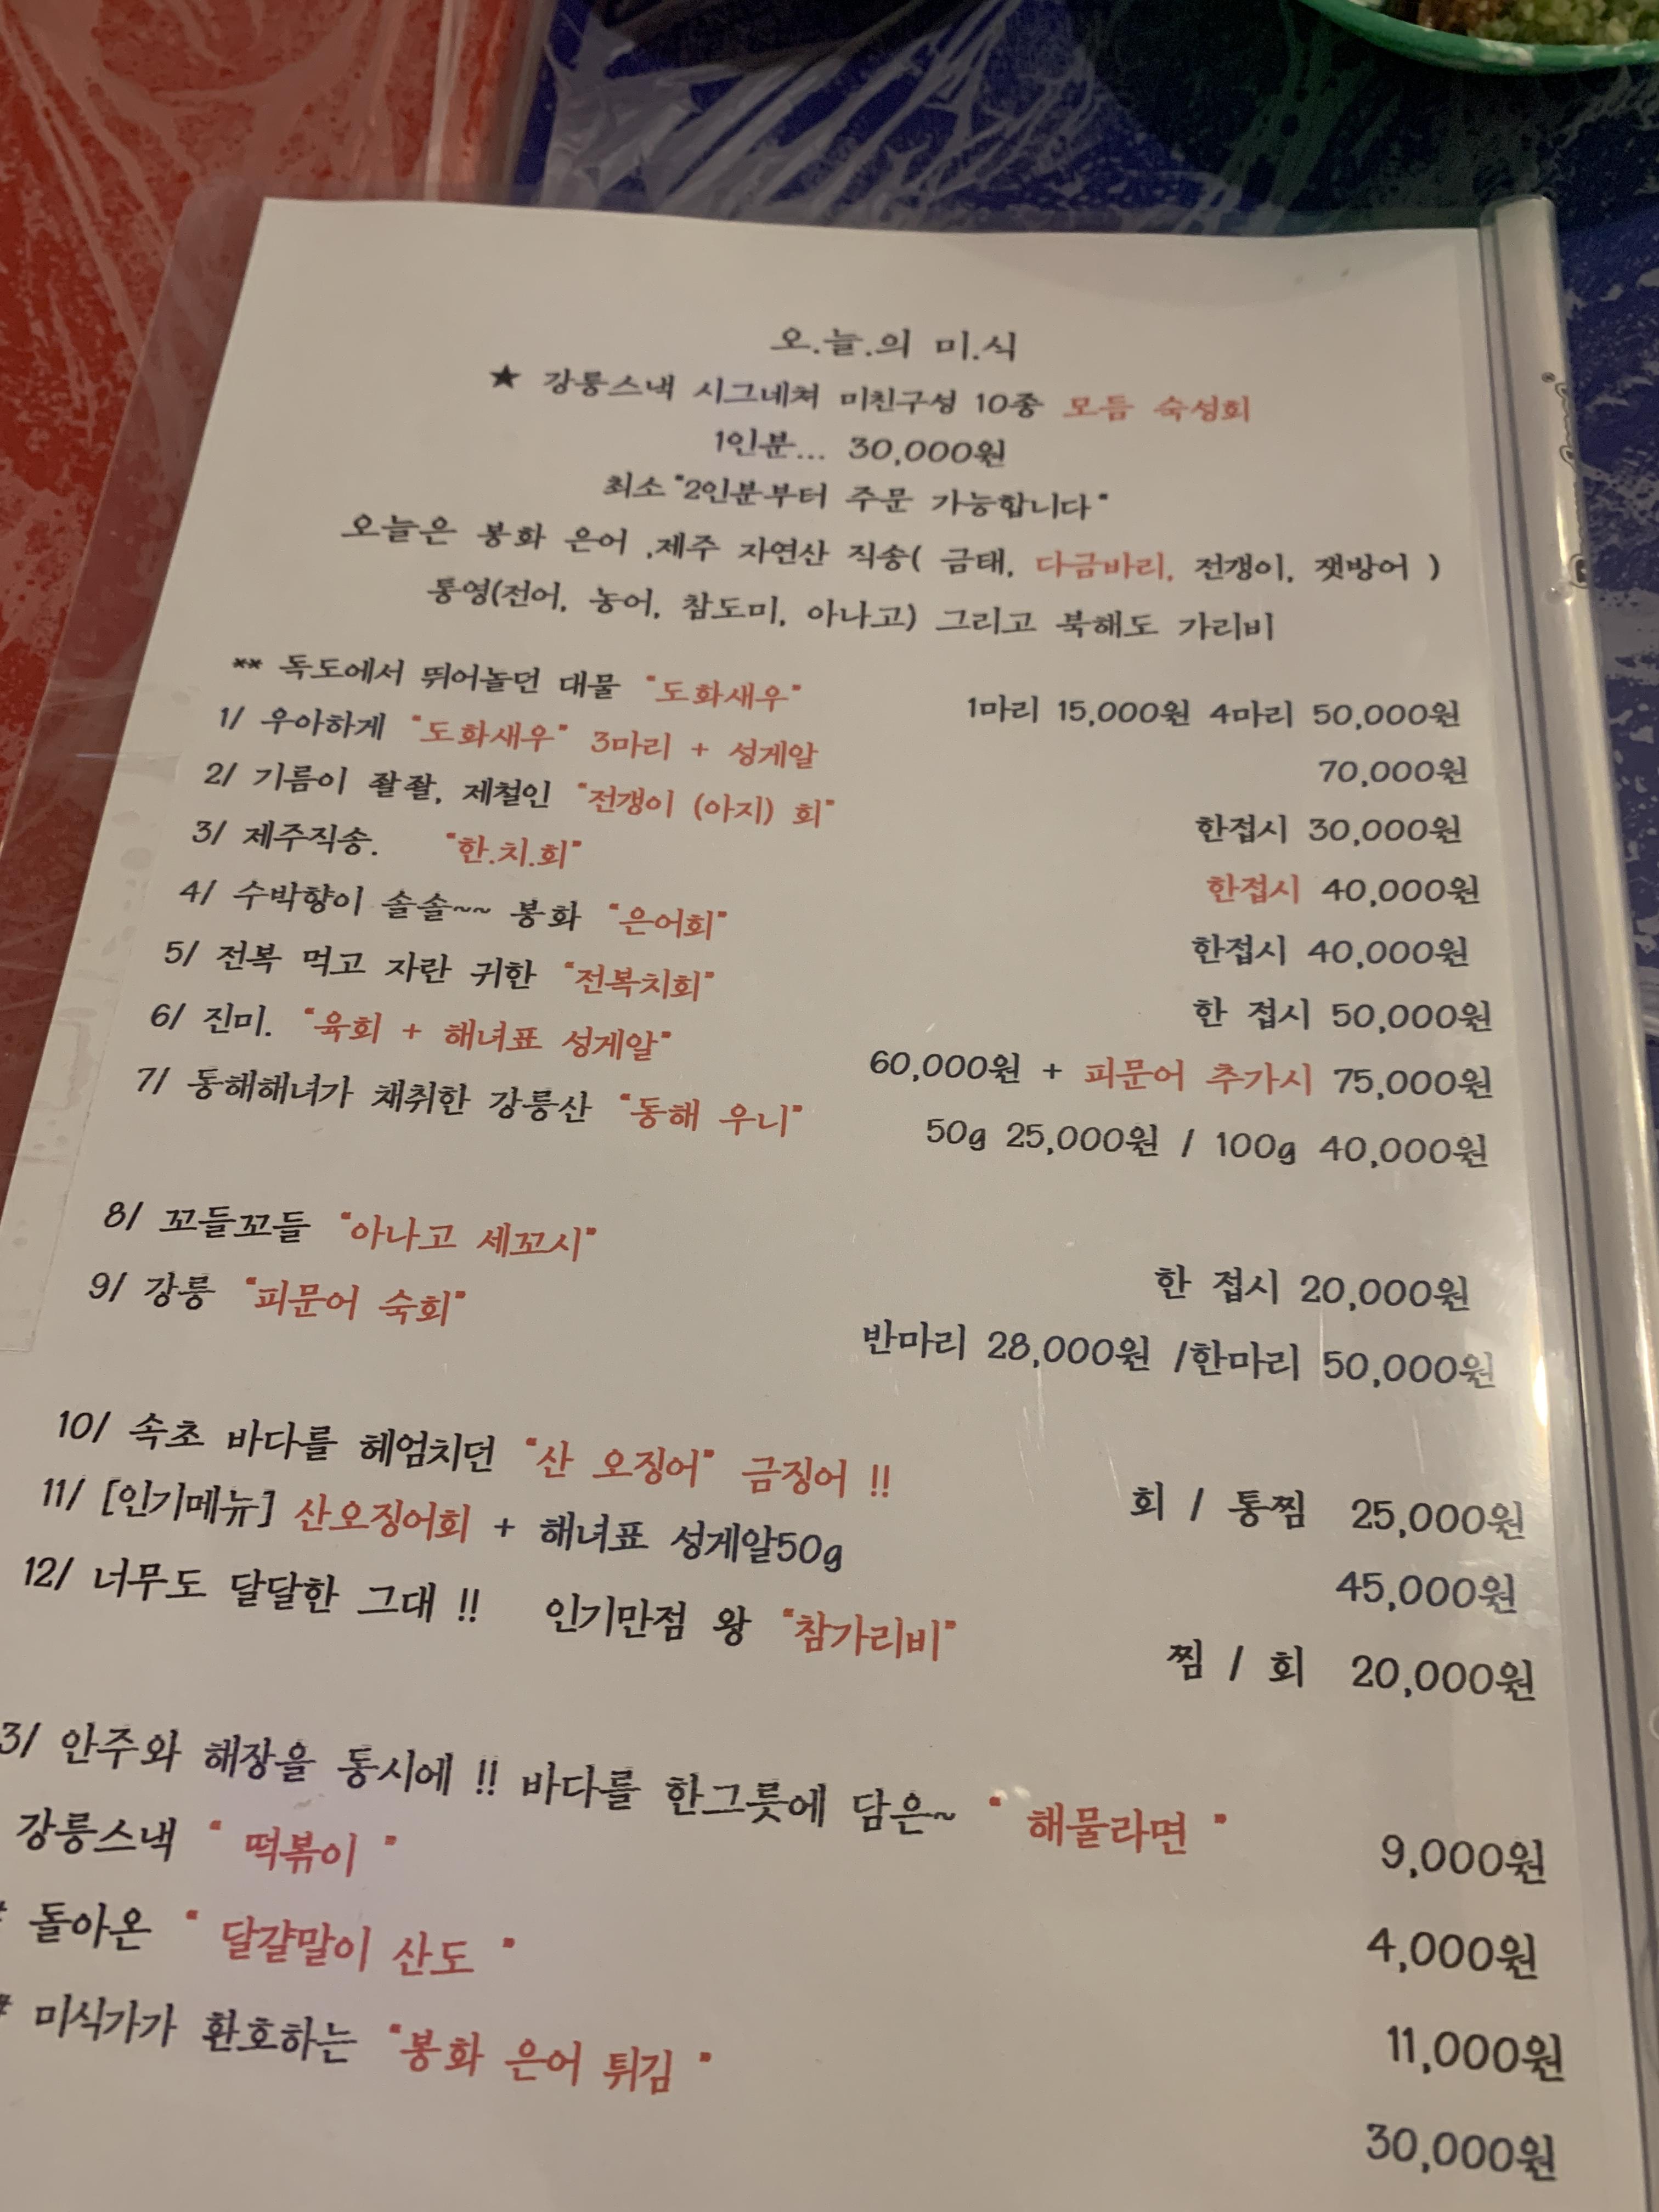 오.늘.의 미.식
★ 강릉스낵 시그네쳐 미친구성 10종 모듬 숙성회
1인분... 30,000원
최소 "2인분부터 주문 가능합니다"
오늘은 봉화 은어 ,제주 자연산 직송( 금태, 다금바리, 전갱이, 잿방어 )
통영(전어, 농어, 참도미, 아나고) 그리고 북해도 가리비
** 독도에서 뛰어놀던 대물 "도화새우" 1마리 15,000원 4마리 50,000원
1/ 우아하게 "도화새우" 3마리 + 성게알 70,000원
2/ 기름이 좔좔, 제철인 "전갱이 (아지) 회" 한접시 30,000원
3/ 제주직송. "한.치.회" 한접시 40,000원
4/ 수박향이 솔솔~~ 봉화 "은어회" 한접시 40,000원
5/ 전복 먹고 자란 귀한 "전복치회" 한 접시 50,000원
6/ 진미. "육회 + 해녀표 성게알" 60,000원 + 피문어 추가시 75,000원
7/ 동해해녀가 채취한 강릉산 "동해 우니" 50g 25,000원 / 100g 40,000원
8/ 꼬들꼬들 "아나고 세꼬시" 한 접시 20,000원
9/ 강릉 "피문어 숙회" 반마리 28,000원 /한마리 50,000원
10/ 속초 바다를 헤엄치던 "산 오징어" 금징어 !! 회 / 통찜 25,000원
11/ [인기메뉴] 산오징어회 + 해녀표 성게알50g 45,000원
12/ 너무도 달달한 그대 !! 인기만점 왕 "참가리비" 찜 / 회 20,000원
3/ 안주와 해장을 동시에 !! 바다를 한그릇에 담은~ " 해물라면 " 9,000원
강릉스낵 " 떡볶이 " 4,000원
# 돌아온 " 달걀말이 산도 " 11,000원
# 미식가가 환호하는 "봉화 은어 튀김 " 30,000원